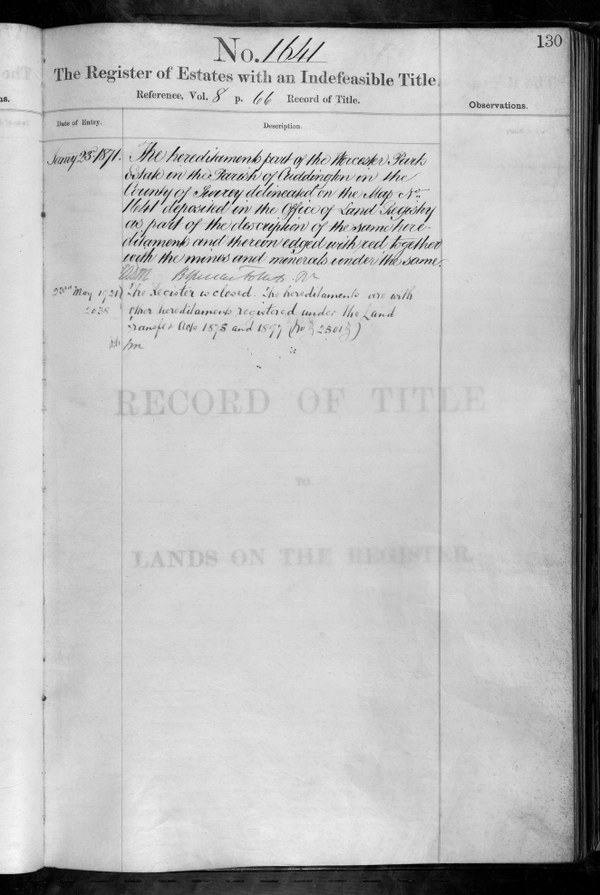 130
No. 1641
The Register of Estates with an Indefeasible Title.
Reference, Vol. 8 p. 66 Record of Title.
Observations.
Date of Entry.
Description.
Jany 23rd 1871.
The hereditaments part of the Worcester Park
Estate in the Parish of Cuddington in the
County of Surrey delineated on the Map No.
1641 deposited in the Office of Land Registry
as part of the description of the same here-
ditaments and therein edged with red together
with the mines and minerals under the same.
23rd May 1921
2038
The Register is closed. The hereditaments are with
other hereditaments registered under the Land
Transfer Acts 1875 and 1897
RECORD OF TITLE
TO
LANDS ON THE REGISTER.